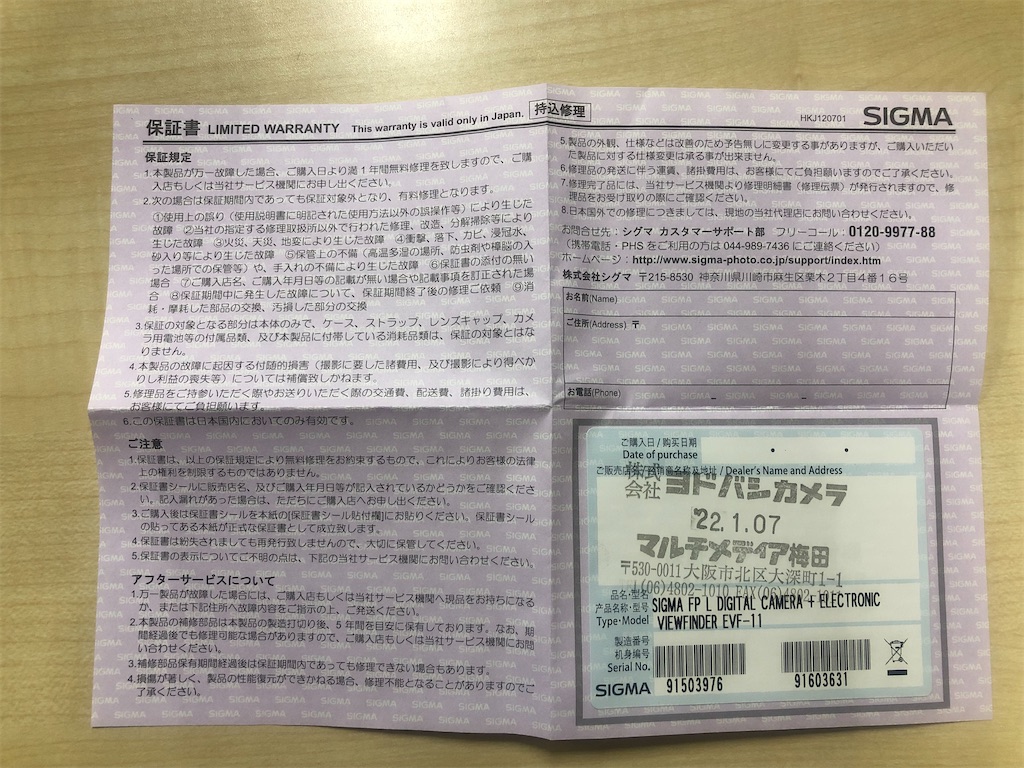 保証書 LIMITED WARRANTY This warranty is valid only in Japan. 持込修理 HKJ120701 SIGMA
保証規定
1.本製品が万一故障した場合、ご購入日より満1年間無料修理を致しますので、ご購
入店もしくは当社サービス機関にお申し出ください。
2.次の場合は保証期間内であっても保証対象外となり、有料修理となります。
①使用上の誤り(使用説明書に明記された使用方法以外の誤操作等)により生じた
故障 ②当社の指定する修理取扱所以外で行われた修理、改造、分解掃除等により
生じた故障 ③火災、天災、地変により生じた故障 ④衝撃、落下、カビ、浸冠水、
砂入り等により生じた故障 ⑤保管上の不備(高温多湿の場所、防虫剤や樟脳の入
った場所での保管等)や、手入れの不備により生じた故障 ⑥保証書の添付のない
場合 ⑦ご購入店名、ご購入年月日等の記載が無い場合や記載事項を訂正された場
合 ⑧保証期間中に発生した故障について、保証期間終了後の修理ご依頼 ⑨消
耗・摩耗した部品の交換、汚損した部分の交換
3.保証の対象となる部分は本体のみで、ケース、ストラップ、レンズキャップ、カメ
ラ用電池等の付属品類、及び本製品に付帯している消耗品類は、保証の対象とはな
りません。
4.本製品の故障に起因する付随的損害(撮影に要した諸費用、及び撮影により得べか
りし利益の喪失等)については補償致しかねます。
5.修理品をご持参いただく際やお送りいただく際の交通費、配送費、諸掛り費用は、
お客様にてご負担願います。
6.この保証書は日本国内においてのみ有効です。
ご注意
1.保証書は、以上の保証規定により無料修理をお約束するもので、これによりお客様の法律
上の権利を制限するものではありません。
2.保証書シールに販売店名、及びご購入年月日等が記入されているかどうかをご確認くださ
い。記入漏れがあった場合は、ただちにご購入店へお申し出ください。
3.ご購入後は保証書シールを本紙の[保証書シール貼付欄]にお貼りください。保証書シール
の貼ってある本紙が正式な保証書として成立致します。
4.保証書は紛失されましても再発行致しませんので、大切に保管してください。
5.保証書の表示についてご不明の点は、下記の当社サービス機関にお問い合わせください。
アフターサービスについて
1.万一製品が故障した場合には、ご購入店もしくは当社サービス機関へ現品をお持ちになる
か、または下記住所へ故障内容をご指示の上、ご発送ください。
2.本製品の補修部品は本製品の製造打切り後、5年間を目安に保有しております。なお、期
間経過後でも修理可能な場合がありますので、ご購入店もしくは当社サービス機関にお問
い合わせください。
3.補修部品保有期間経過後は保証期間内であっても修理できない場合もあります。
4.損傷が著しく、製品の性能復元ができかねる場合、修理不能となることがありますのでご
了承ください。
5.製品の外観、仕様などは改善のため予告無しに変更する事がありますが、ご購入いただい
た製品に対する仕様変更は承る事が出来ません。
6.修理品の発送に伴う運賃、諸費用は、お客様にてご負担願いますのでご了承ください。
7.修理完了品には、当社サービス機関より修理明細書(修理伝票)が発行されますので、修
理品をお受け取りの際にご確認ください。
8.日本国外での修理につきましては、現地の当社代理店にお問い合わせください。
お問合せ先:シグマ カスタマーサポート部 フリーコール:0120-9977-88
(携帯電話・PHS をご利用の方は 044-989-7436 にご連絡ください)
ホームページ:http://www.sigma-photo.co.jp/support/index.htm
株式会社シグマ 〒215-8530 神奈川県川崎市麻生区栗木2丁目4番16号
お名前(Name)
ご住所(Address) 〒
お電話(Phone) – –
ご購入日 / 购买日期
Date of purchase • •
ご販売店 / 销售商名称及地址 / Dealer's Name and Address
株式
会社 ヨドバシカメラ
'22.1.07
マルチメディア梅田
〒530-0011大阪市北区大深町1-1
(06)4802-1010 FAX(06)4802-1011
品名・型名
产品名称・型号
Type・Model
SIGMA FP L DIGITAL CAMERA + ELECTRONIC
VIEWFINDER EVF-11
製造番号
机身编号
Serial No.
SIGMA 91503976 91603631